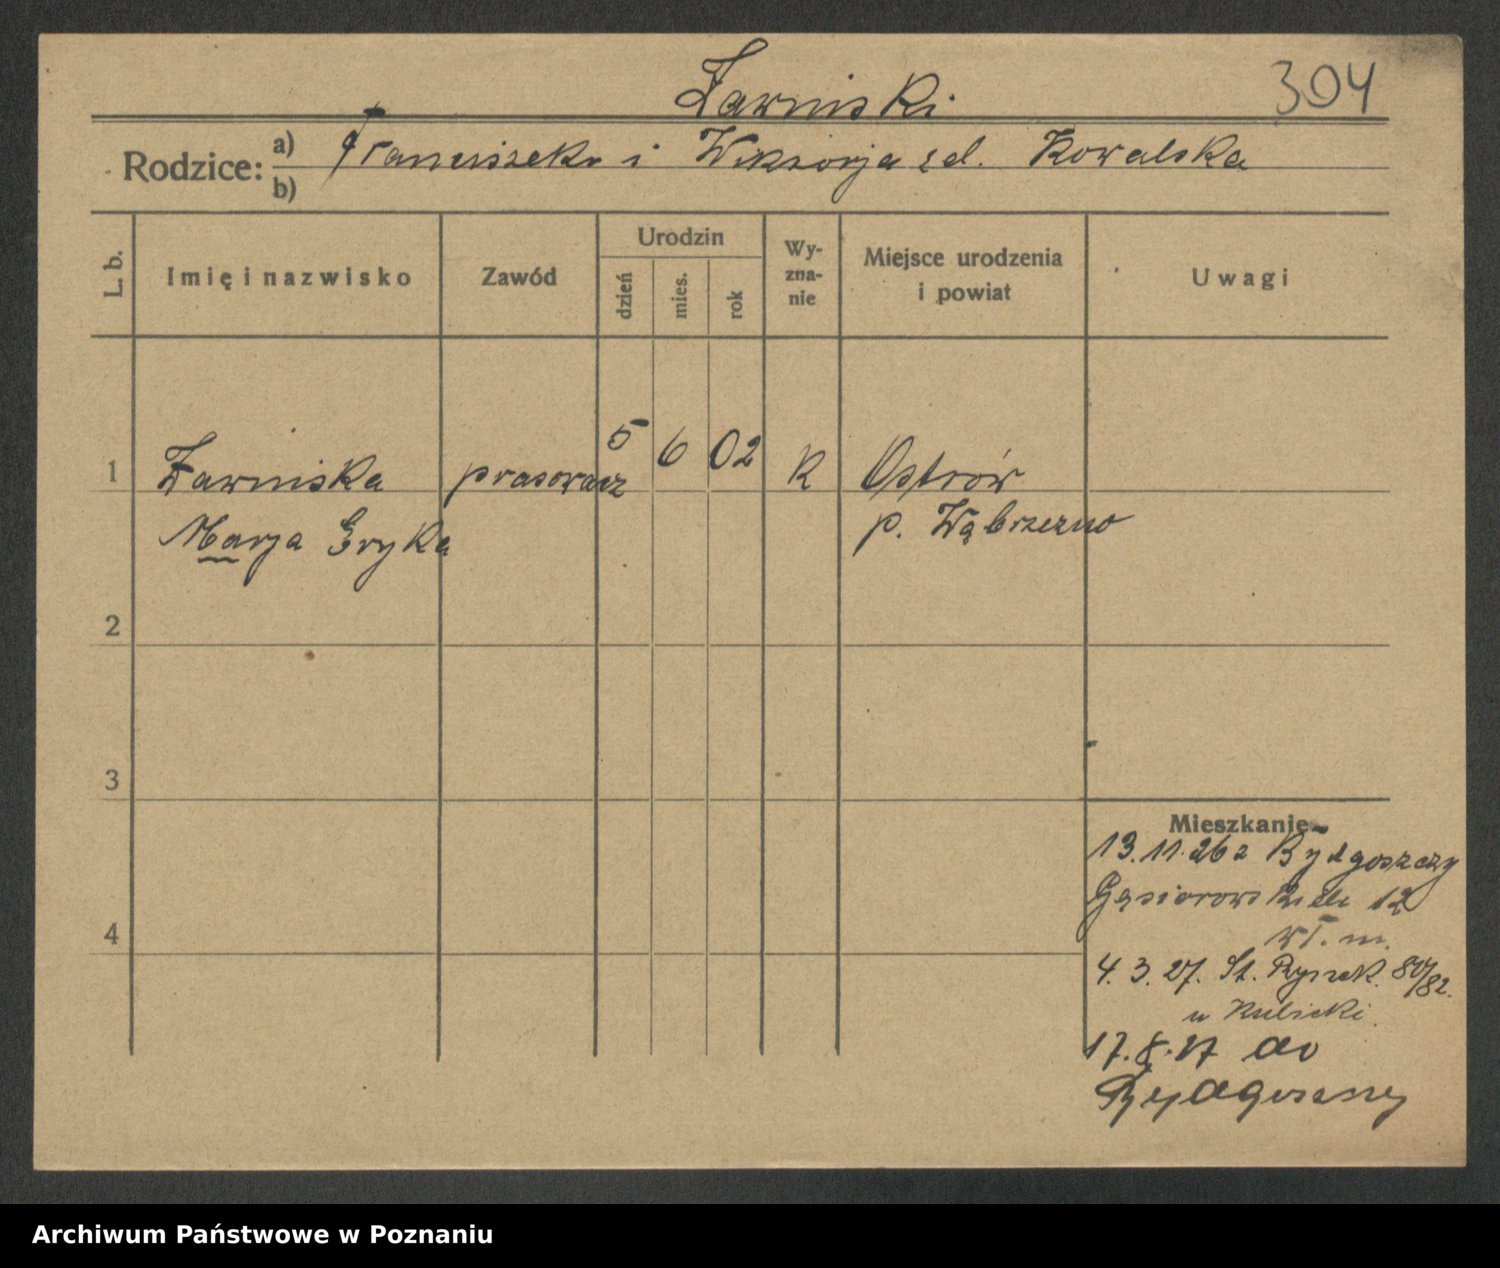 Żarniski
304
Rodzice: a) Franciszek i Wiktorja zd. Kowalska
b)
L. b.
Imię i nazwisko
Zawód
Urodzin
dzień
mies.
rok
Wy-
zna-
nie
Miejsce urodzenia
i powiat
Uwagi
1 Żarniska prasowacz 5 6 02 R Ostrów
Marja Gryka p. Wąbrzezno
2
3
Mieszkanie
13.11.26 z Bydgoszczy
Gąsiorowskich 12
4
WT. m.
4. 3. 27. St. Rynek. 80/82.
u Kubicki
17.8.27 do
Bydgoszczy
Archiwum Państwowe w Poznaniu